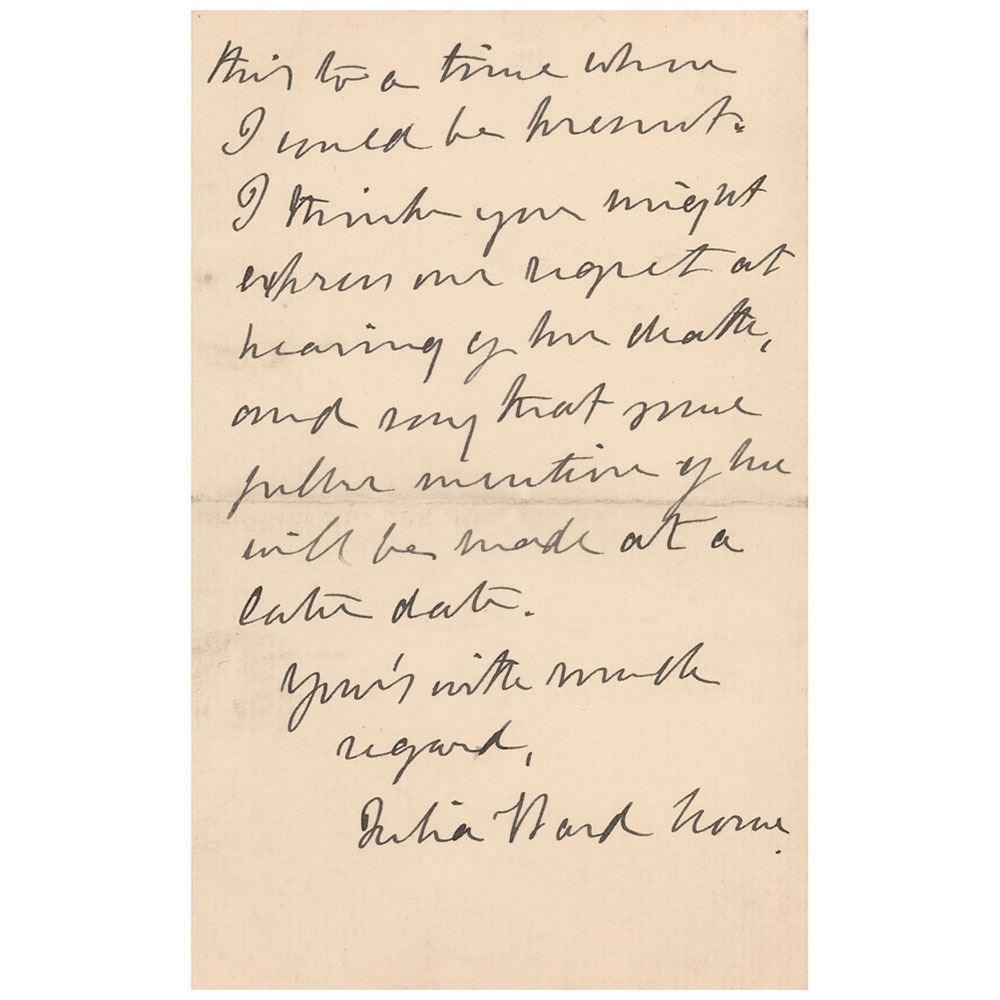 this to a time when
I could be present.
I think you might
express our regret at
hearing of her death,
and say that some
fuller mention of her
will be made at a
later date.
Your's with much
regard,
Julia Ward Howe.